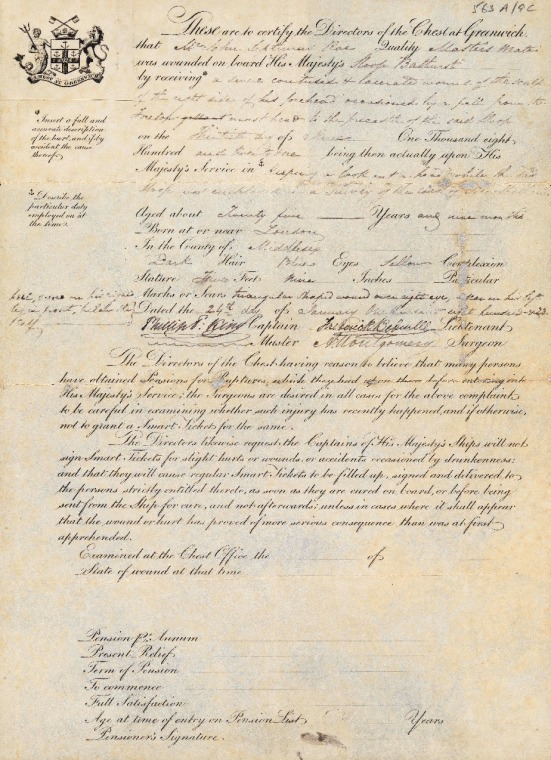 563 A/9C
These are to certify the Directors of the Chest at Greenwich,
that Mr John Septimus Roe Quality Masters Mate
was wounded on board His Majesty's Sloop Bathurst
by receiving a severe contused & lacerated wound of the scalp
of the right side of his forehead occasioned by a fall from the
mast head to the of the said Sloop
on the day of One Thousand eight
Hundred and twenty one being then actually upon His
Majesty's Service in keeping a look out mast head while the said
Sloop was employed in a survey of the coast of
* Insert a full and
accurate description
of the hurt, and if by
accident the cause
thereof.
* Describe the
particular duty
employed on at
the time.
Aged about Twenty five Years and nine months
Born at or near London
In the County of Middlesex
Dark Hair Blue Eyes Sallow Complexion
Stature Five Feet Nine Inches Particular
Marks or Scars triangular shaped wound over right eye, scar on his left
Dated the 24th day of January one thousand eight hundred & 23
Phillip P. King Captain Frederick Bedwell Lieutenant
Master A. Montgomery Surgeon
The Directors of the Chest having reason to believe that many persons
have obtained Pensions for Ruptures, which they had upon them before entering into
His Majesty's Service; the Surgeons are desired in all cases for the above complaint
to be careful in examining whether such injury has recently happened, and if otherwise,
not to grant a Smart Ticket for the same.
The Directors likewise request the Captains of His Majesty's Ships will not
sign Smart Tickets for slight hurts or wounds, or accidents occasioned by drunkenness;
and that they will cause regular Smart Tickets to be filled up, signed and delivered to
the persons strictly entitled thereto, as soon as they are cured on board, or before being
sent from the Ship for cure, and not afterwards; unless in cases where it shall appear
that the wound or hurt has proved of more serious consequence than was at first
apprehended.
Examined at the Chest Office the of
State of wound at that time
Pension pr. Annum
Present Relief
Term of Pension
To commence
Full Satisfaction
Age at time of entry on Pension List Years
Pensioner's Signature